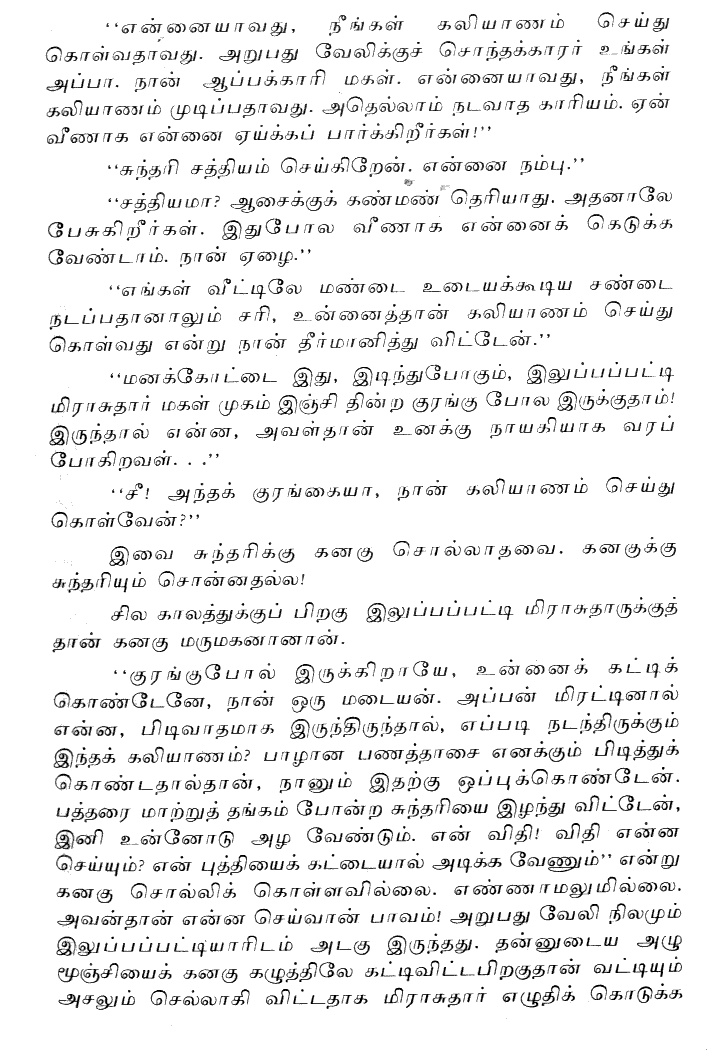 ‘‘என்னையாவது, நீங்கள் கலியாணம் செய்து
கொள்வதாவது. அறுபது வேலிக்குச் சொந்தக்காரர் உங்கள்
அப்பா. நான் ஆப்பக்காரி மகள். என்னையாவது, நீங்கள்
கலியாணம் முடிப்பதாவது. அதெல்லாம் நடவாத காரியம். ஏன்
வீணாக என்னை ஏய்க்கப் பார்க்கிறீர்கள்!’’
‘‘சுந்தரி சத்தியம் செய்கிறேன். என்னை நம்பு.’’
‘‘சத்தியமா? ஆசைக்குக் கண்மண் தெரியாது. அதனாலே
பேசுகிறீர்கள். இதுபோல வீணாக என்னைக் கெடுக்க
வேண்டாம். நான் ஏழை.’’
‘‘எங்கள் வீட்டிலே மண்டை உடையக்கூடிய சண்டை
நடப்பதானாலும் சரி, உன்னைத்தான் கலியாணம் செய்து
கொள்வது என்று நான் தீர்மானித்து விட்டேன்.’’
‘‘மனக்கோட்டை இது, இடிந்துபோகும், இலுப்பப்பட்டி
மிராசுதார் மகள் முகம் இஞ்சி தின்ற குரங்கு போல இருக்குதாம்!
இருந்தால் என்ன, அவள்தான் உனக்கு நாயகியாக வரப்
போகிறவள். . .’’
‘‘சீ! அந்தக் குரங்கையா, நான் கலியாணம் செய்து
கொள்வேன்?’’
இவை சுந்தரிக்கு கனகு சொல்லாதவை. கனகுக்கு
சுந்தரியும் சொன்னதல்ல!
சில காலத்துக்குப் பிறகு இலுப்பப்பட்டி மிராசுதாருக்குத்
தான் கனகு மருமகனானான்.
‘‘குரங்குபோல் இருக்கிறாயே, உன்னைக் கட்டிக்
கொண்டேனே, நான் ஒரு மடையன். அப்பன் மிரட்டினால்
என்ன, பிடிவாதமாக இருந்திருந்தால், எப்படி நடந்திருக்கும்
இந்தக் கலியாணம்? பாழான பணத்தாசை எனக்கும் பிடித்துக்
கொண்டதால்தான், நானும் இதற்கு ஒப்புக்கொண்டேன்.
பத்தரை மாற்றுத் தங்கம் போன்ற சுந்தரியை இழந்து விட்டேன்,
இனி உன்னோடு அழ வேண்டும். என் விதி! விதி என்ன
செய்யும்? என் புத்தியைக் கட்டையால் அடிக்க வேணும்’’ என்று
கனகு சொல்லிக் கொள்ளவில்லை. எண்ணாமலுமில்லை.
அவன்தான் என்ன செய்வான் பாவம்! அறுபது வேலி நிலமும்
இலுப்பப்பட்டியாரிடம் அடகு இருந்தது. தன்னுடைய அழு
மூஞ்சியைக் கனகு கழுத்திலே கட்டிவிட்டபிறகுதான் வட்டியும்
அசலும் செல்லாகி விட்டதாக மிராசுதார் எழுதிக் கொடுக்க